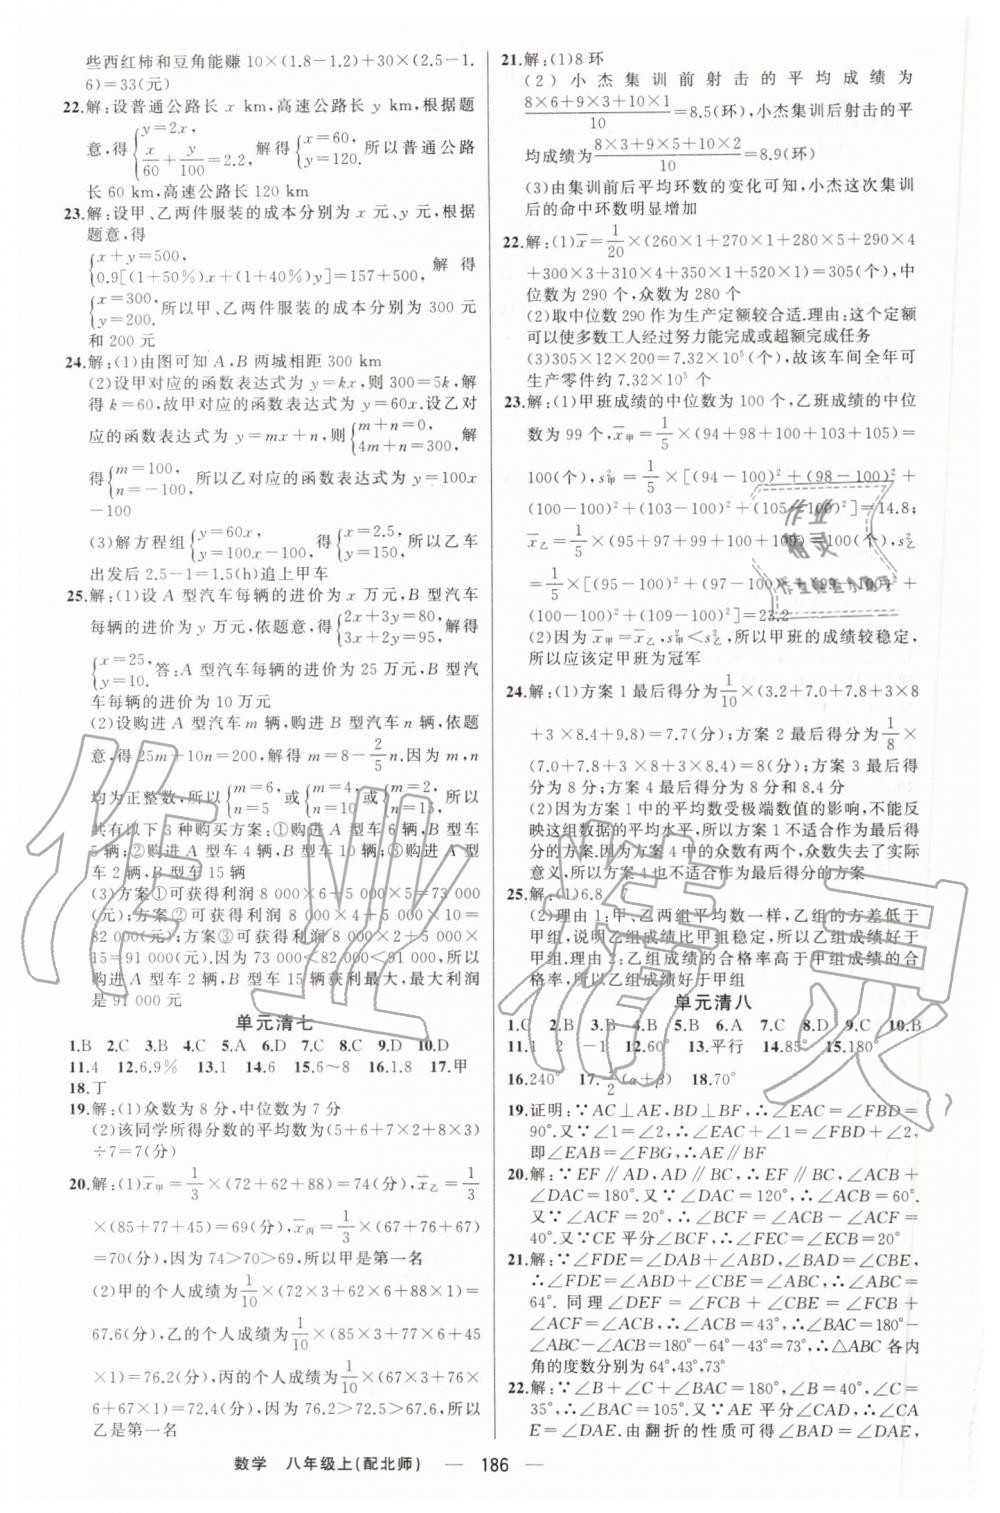 些西红柿和豆角能赚 10×(1.8-1.2)+30×(2.5-1.
6)=33(元)
22.解:设普通公路长 x km,高速公路长 y km,根据题
意,得{y=2x, x/60+y/100=2.2, 解得{x=60, y=120. 所以普通公路
长 60 km,高速公路长 120 km
23.解:设甲、乙两件服装的成本分别为 x 元、y 元,根据
题意,得
{x+y=500, 0.9[(1+50%)x+(1+40%)y]=157+500, 解得
{x=300, y=200. 所以甲、乙两件服装的成本分别为 300 元
和 200 元
24.解:(1)由图可知 A,B 两城相距 300 km
(2)设甲对应的函数表达式为 y=kx,则 300=5k,解
得 k=60,故甲对应的函数表达式为 y=60x.设乙对
应的函数表达式为 y=mx+n,则{m+n=0, 4m+n=300, 解
得{m=100, n=-100. 所以乙对应的函数表达式为 y=100x
-100
(3)解方程组{y=60x, y=100x-100, 得{x=2.5, y=150, 所以乙车
出发后 2.5-1=1.5(h)追上甲车
25.解:(1)设 A 型汽车每辆的进价为 x 万元,B 型汽车
每辆的进价为 y 万元,依题意,得{2x+3y=80, 3x+2y=95, 解得
{x=25, y=10. 答:A 型汽车每辆的进价为 25 万元,B 型汽
车每辆的进价为 10 万元
(2)设购进 A 型汽车 m 辆,购进 B 型汽车 n 辆,依题
意,得 25m+10n=200,解得 m=8-2/5n.因为 m,n
均为正整数,所以{m=6, n=5 或{m=4, n=10 或{m=2, n=15, 所以
共有以下 3 种购买方案:①购进 A 型车 6 辆,B 型车
5 辆;②购进 A 型车 4 辆,B 型车 10 辆;③购进 A 型
车 2 辆,B 型车 15 辆
(3)方案①可获得利润 8 000×6+5 000×5=73 000
(元);方案②可获得利润 8 000×4+5 000×10=
82 000(元);方案③可获得利润 8 000×2+5 000×
15=91 000(元).因为 73 000<82 000<91 000,所以
购进 A 型车 2 辆,B 型车 15 辆获利最大,最大利润
是 91 000 元
单元清七
1.B 2.C 3.B 4.C 5.A 6.D 7.C 8.D 9.D 10.D
11.4 12.6,9% 13.1 14.6 15.6~8 16.1.8 17.甲
18.丁
19.解:(1)众数为 8 分,中位数为 7 分
(2)该同学所得分数的平均数为(5+6+7×2+8×3)
÷7=7(分)
20.解:(1)x̄甲=1/3×(72+62+88)=74(分),x̄乙=1/3
×(85+77+45)=69(分),x̄丙=1/3×(67+76+67)
=70(分),因为 74>70>69,所以甲是第一名
(2)甲的个人成绩为1/10×(72×3+62×6+88×1)=
67.6(分),乙的个人成绩为1/10×(85×3+77×6+45
×1)=76.2(分),丙的个人成绩为1/10×(67×3+76×
6+67×1)=72.4(分),因为 76.2>72.5>67.6,所以
乙是第一名
21.解:(1)8 环
(2)小杰集训前射击的平均成绩为
(8×6+9×3+10×1)/10=8.5(环),小杰集训后射击的平
均成绩为(8×3+9×5+10×2)/10=8.9(环)
(3)由集训前后平均环数的变化可知,小杰这次集训
后的命中环数明显增加
22.解:(1)x̄=1/20×(260×1+270×1+280×5+290×4
+300×3+310×4+350×1+520×1)=305(个),中
位数为 290 个,众数为 280 个
(2)取中位数 290 作为生产定额较合适.理由:这个定额
可以使多数工人经过努力能完成或超额完成任务
(3)305×12×200=7.32×10⁵(个),故该车间全年可
生产零件约 7.32×10⁵ 个
23.解:(1)甲班成绩的中位数为 100 个,乙班成绩的中位
数为 99 个,x̄甲=1/5×(94+98+100+103+105)=
100(个),s²甲=1/5×[(94-100)²+(98-100)²+
(100-100)²+(103-100)²+(105-100)²]=14.8;
x̄乙=1/5×(95+97+99+100+109)=100(个),s²乙
=1/5×[(95-100)²+(97-100)²+(99-100)²+
(100-100)²+(109-100)²]=23.2
(2)因为 x̄甲=x̄乙,s²甲<s²乙,所以甲班的成绩较稳定,
所以应该定甲班为冠军
24.解:(1)方案 1 最后得分为1/10×(3.2+7.0+7.8+3×8
+3×8.4+9.8)=7.7(分);方案 2 最后得分为1/8×
(7.0+7.8+3×8+3×8.4)=8(分);方案 3 最后得
分为 8 分;方案 4 最后得分为 8 分和 8.4 分
(2)因为方案 1 中的平均数受极端数值的影响,不能反
映这组数据的平均水平,所以方案 1 不适合作为最后得
分的方案.因为方案 4 中的众数有两个,众数失去了实际
意义,所以方案 4 也不适合作为最后得分的方案
25.解:(1)6.8 7
(2)理由 1:甲、乙两组平均数一样,乙组的方差低于
甲组,说明乙组成绩比甲组稳定,所以乙组成绩好于
甲组.理由 2:乙组成绩的合格率高于甲组成绩的合
格率,所以乙组成绩好于甲组
单元清八
1.C 2.B 3.B 4.B 5.B 6.A 7.C 8.D 9.C 10.B
11.1 2 -1 12.60° 13.平行 14.85° 15.180°
16.240° 17.1/2(α+β) 18.70°
19.证明:∵AC⊥AE,BD⊥BF,∴∠EAC=∠FBD=
90°.又∵∠1=∠2,∴∠EAC+∠1=∠FBD+∠2,
即∠EAB=∠FBG,∴AE∥BF
20.解:∵EF∥AD,AD∥BC,∴EF∥BC,∠ACB+
∠DAC=180°.又∵∠DAC=120°,∴∠ACB=60°.
又∵∠ACF=20°,∴∠BCF=∠ACB-∠ACF=
40°.又∵CE 平分∠BCF,∴∠FEC=∠ECB=20°
21.解:∵∠FDE=∠DAB+∠ABD,∠BAD=∠CBE,
∴∠FDE=∠ABD+∠CBE=∠ABC,∴∠ABC=
64°.同理∠DEF=∠FCB+∠CBE=∠FCB+
∠ACF=∠ACB,∴∠ACB=43°,∴∠BAC=180°-
∠ABC-∠ACB=180°-64°-43°=73°,∴△ABC 各内
角的度数分别为 64°,43°,73°
22.解:∵∠B+∠C+∠BAC=180°,∠B=40°,∠C=
35°,∴∠BAC=105°.又∵AE 平分∠CAD,∴∠CAE
=∠DAE.由翻折的性质可得∠BAD=∠DAE,
数学 八年级上(配北师) — 186 —
作业精灵